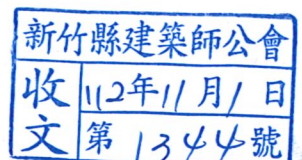 新竹縣建築師公會
收文
112年11月1日
第1344號